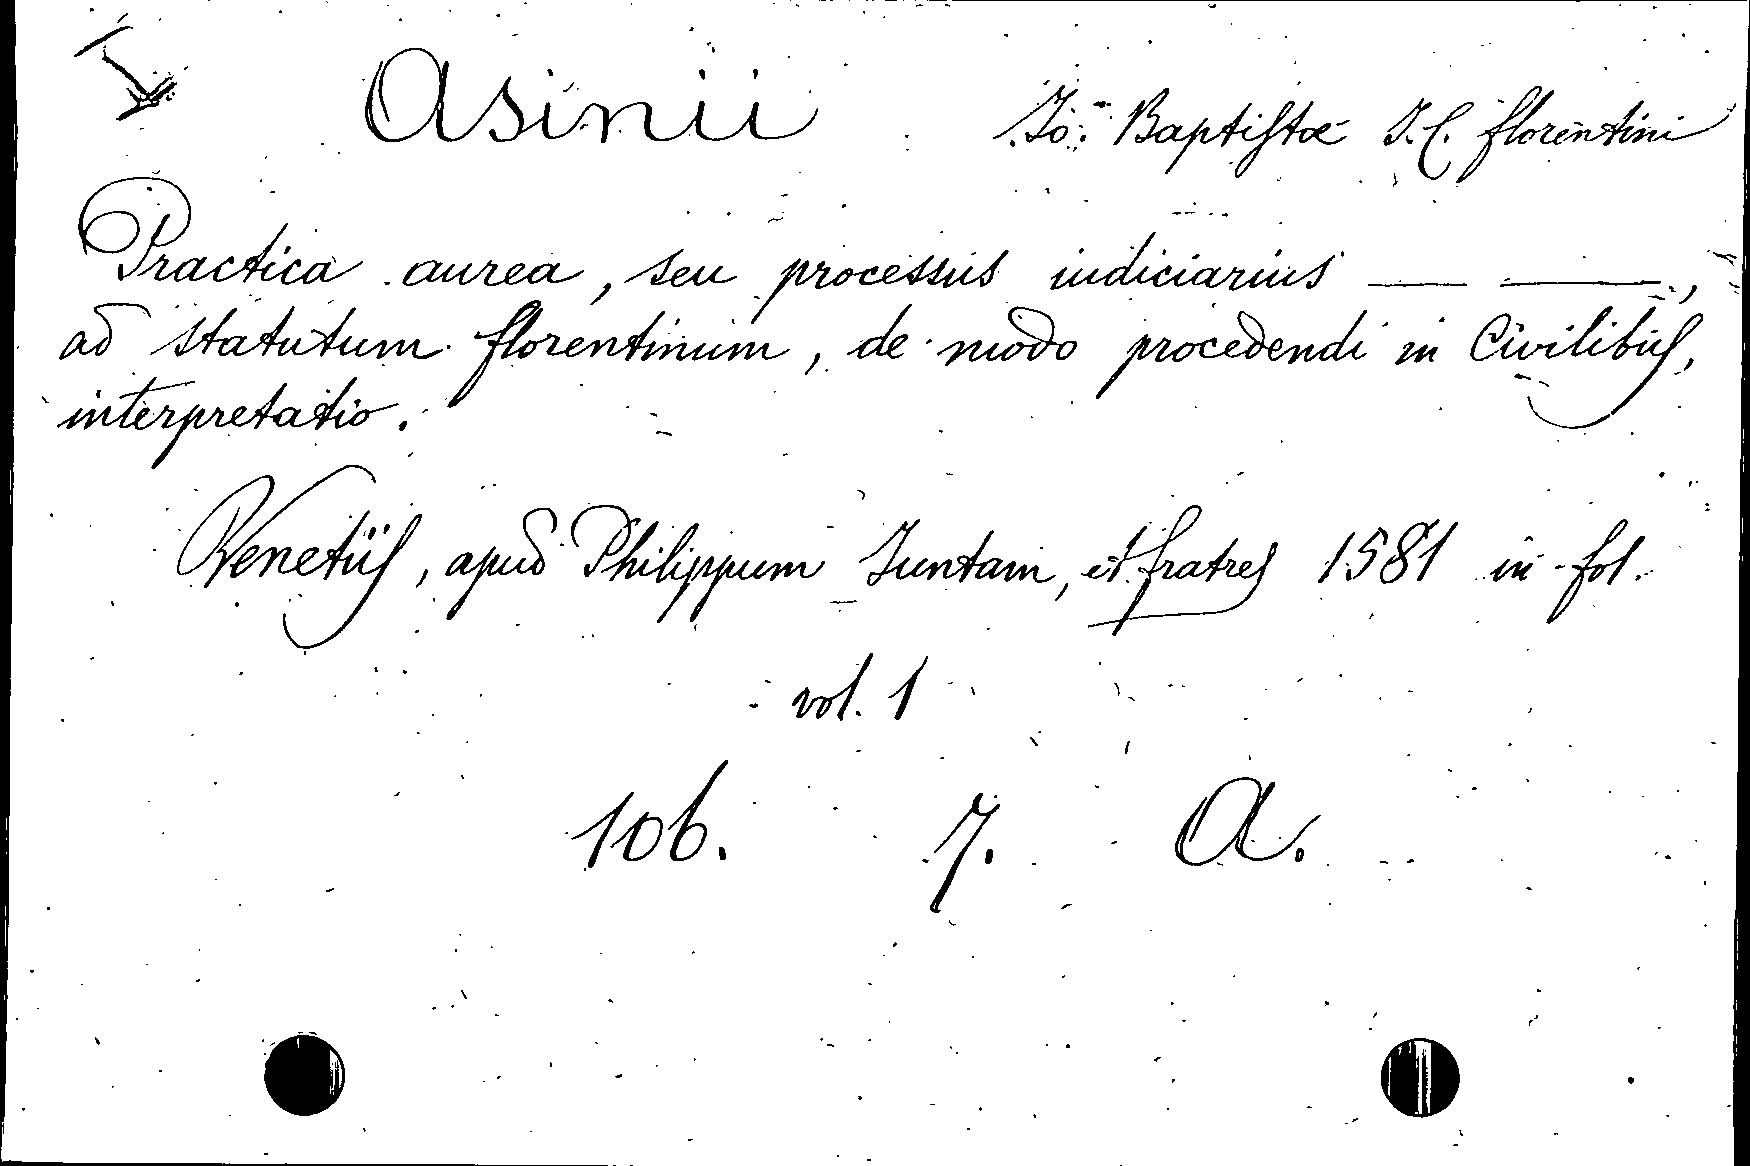 Asinii Io: Baptistæ I.C. florentini
Practica aurea, seu processus iudiciarius — —,
ad statutum florentinum, de modo procedendi in Civilibus,
interpretatio.
Venetiis, apud Philippum Iuntam, et fratres 1581 in fol.
vol. 1
106. 7. A.